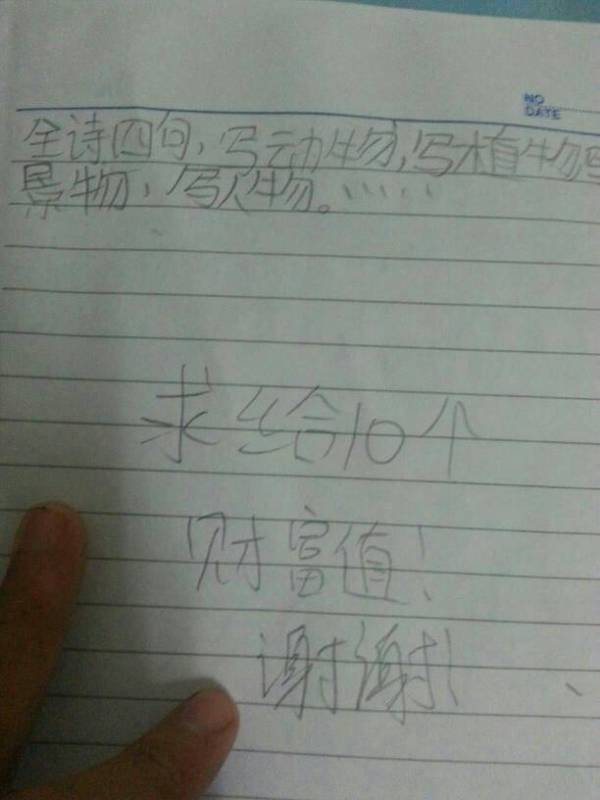 NO
DATE
全诗四句，写动物，写植物写
景物，写人物。……
求给10个
财富值！
谢谢！